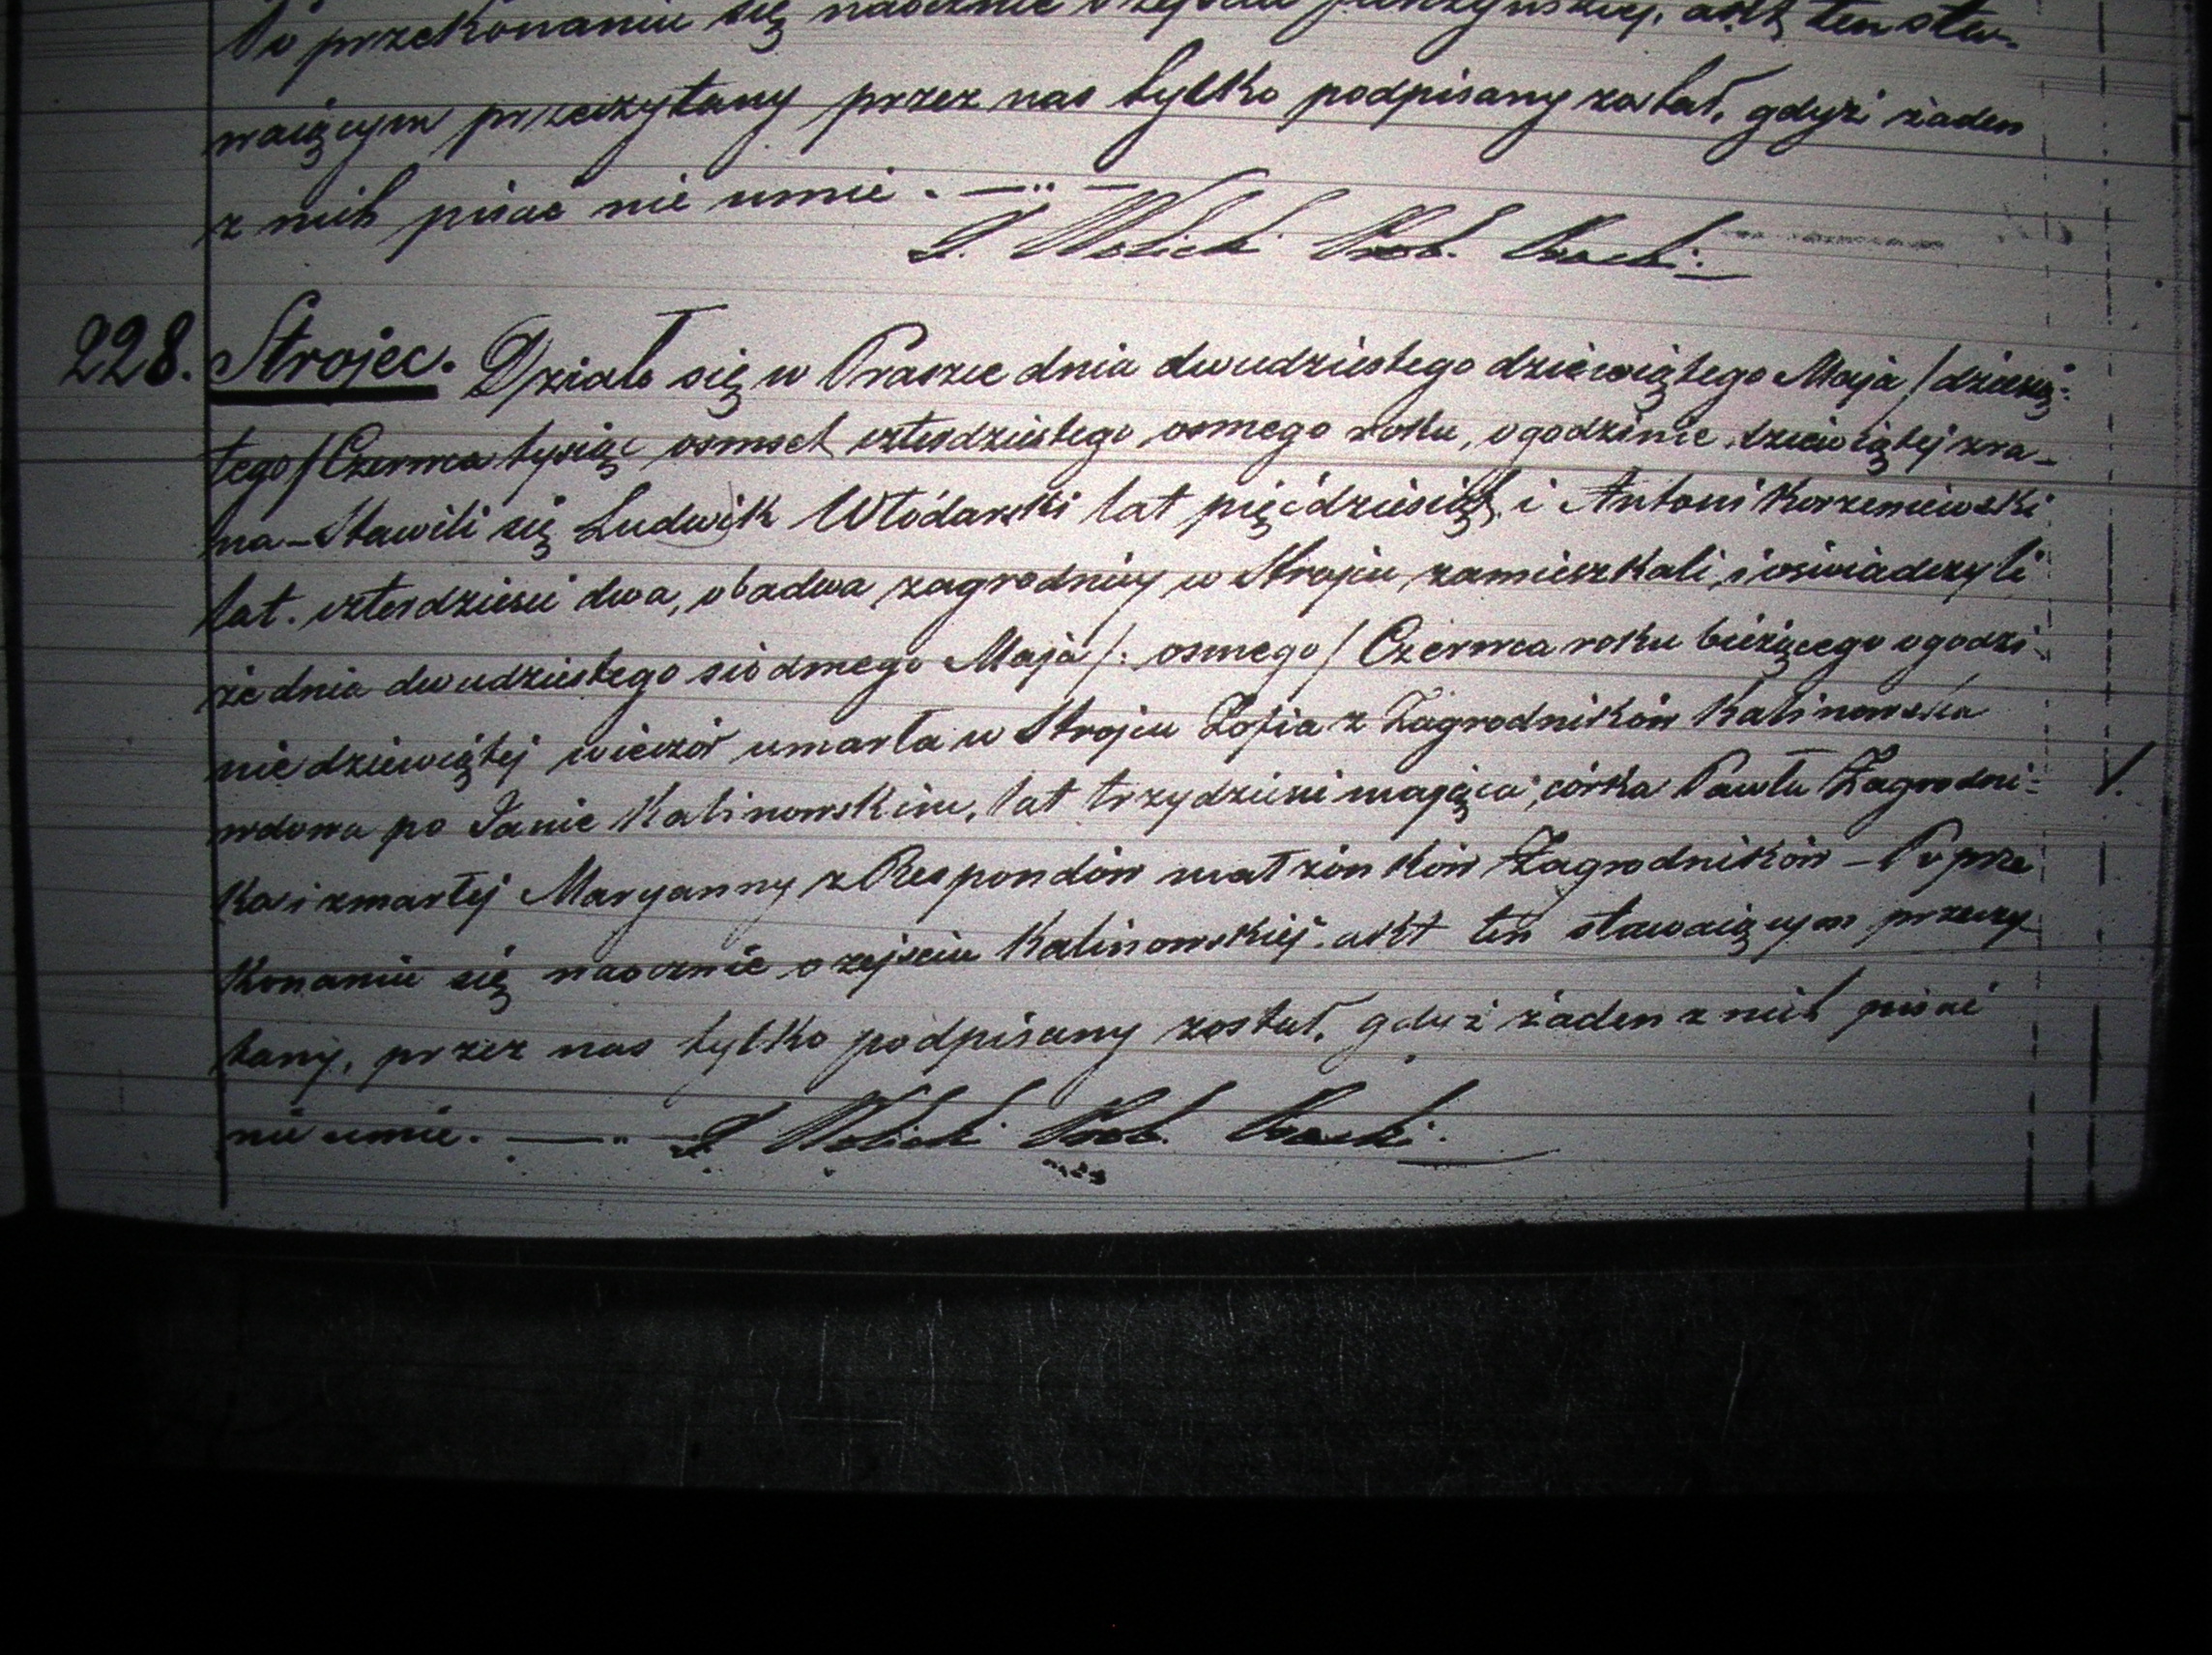 Po przekonaniu się naocznie o zejściu akt ten sta-
waiącym przeczytany przez nas tylko podpisany został, gdyż żaden
z nich pisać nie umie. —
Prob. Praszki.
228. Strojec. Działo się w Praszce dnia dwudziestego dziewiątego Maja / dziesią-
tego / Czerwca tysiąc osmset czterdziestego osmego roku, o godzinie dziewiątej zra-
na – Stawili się Ludwik Włódarski lat pięćdziesiąt, i Antoni Korzeniewski
lat. czterdzieści dwa, obadwa zagrodnicy w Strojcu zamieszkali, i oświadczyli
że dnia dwudziestego siódmego Maja /: osmego / Czerwca roku bieżącego o godzi-
nie dziewiątej wieczór umarła w Strojcu Zofia z Zagrodników Kalinowska
wdowa po Janie Kalinowskim, lat trzydzieści mająca, córka Pawła Zagrodni-
ka i zmarłej Maryanny z Respondów małżonków Zagrodników – Po prze
konaniu się naocznie o zejściu Kalinowskiej, akt ten stawaiącym przeczy-
tany, przez nas tylko podpisany został, gdyż żaden z nich pisać
nie umie. — Prob. Praszki.